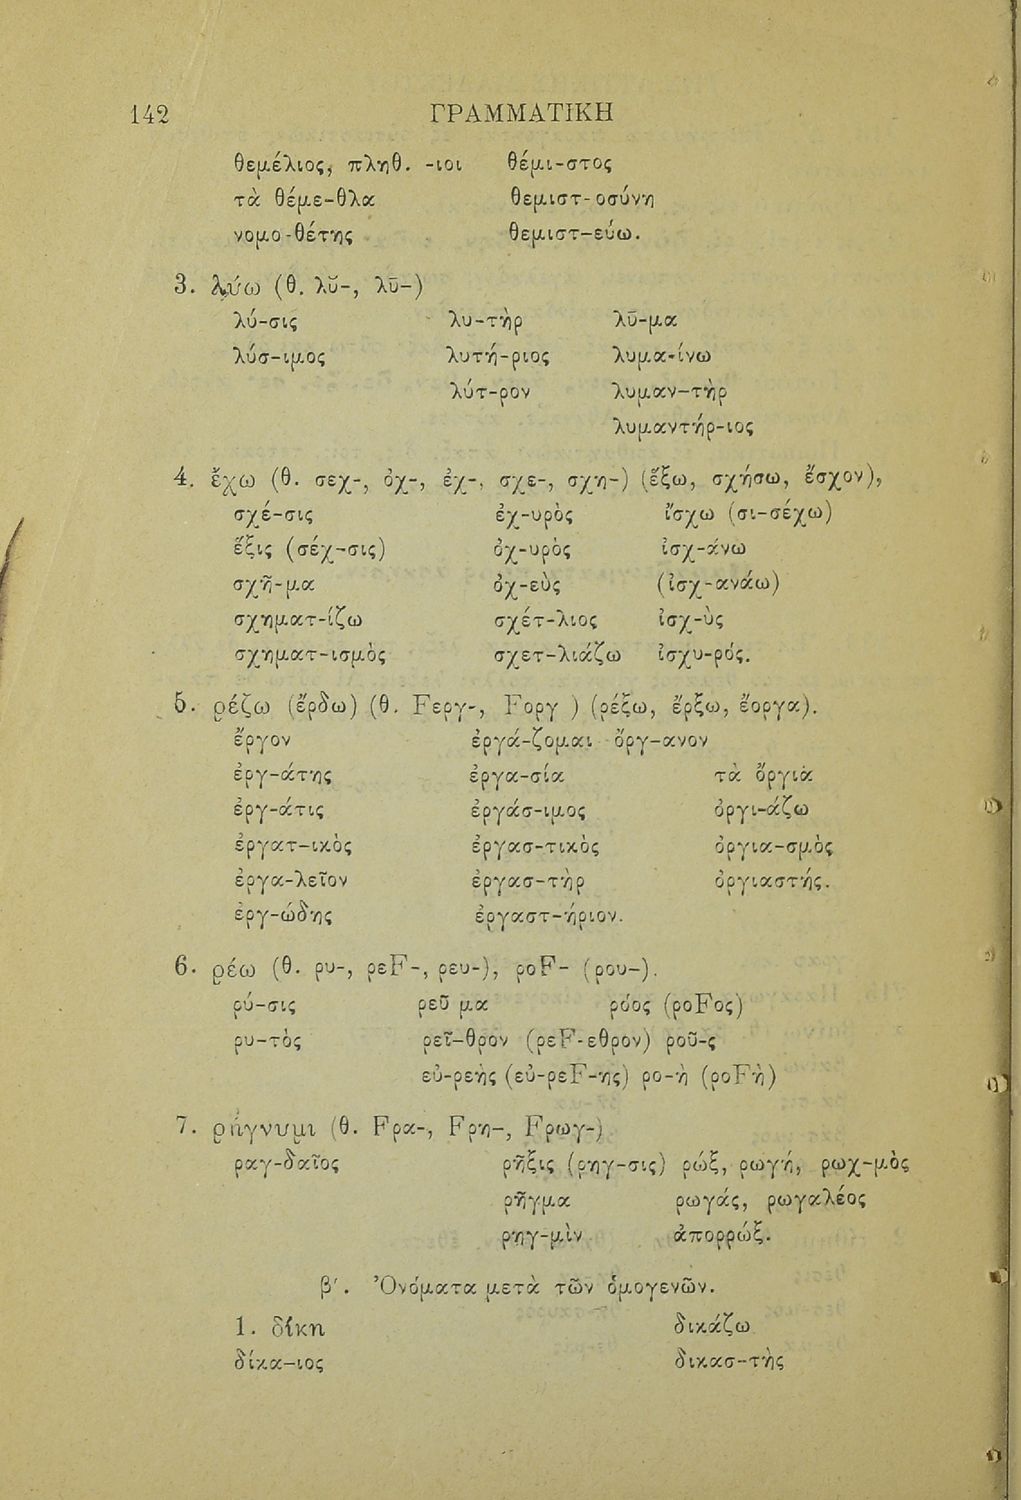 142 ΓΡΑΜΜΑΤΙΚΗ
θεμέλιος, πληθ. -ιοι θέμι-στος
τὰ θέμε-θλα θεμιστ-οσύνη
νομο-θέτης θεμιστ-εύω.
3. λύω (θ. λῠ-, λῡ-)
λύ-σις λυ-τὴρ λῦ-μα
λύσ-ιμος λυτή-ριος λυμα-ίνω
λύτ-ρον λυμαν-τὴρ
λυμαντήρ-ιος
4. ἔχω (θ. σεχ-, ὀχ-, ἐχ-, σχε-, σχη-) (ἕξω, σχήσω, ἔσχον),
σχέ-σις ἐχ-υρὸς ἴσχω (σι-σέχω)
ἕξις (σέχ-σις) ὀχ-υρὸς ἰσχ-άνω
σχῆ-μα ὀχ-εὺς (ἰσχ-ανάω)
σχηματ-ίζω σχέτ-λιος ἰσχ-ὺς
σχηματ-ισμὸς σχετ-λιάζω ἰσχυ-ρός.
5. ρέζω (ἔρδω) (θ. Fεργ-, Fοργ ) (ρέξω, ἔρξω, ἔοργα).
ἔργον ἐργά-ζομαι ὄργ-ανον
ἐργ-άτης ἐργα-σία τὰ ὄργια
ἐργ-άτις ἐργάσ-ιμος ὀργι-άζω
ἐργατ-ικὸς ἐργασ-τικὸς ὀργια-σμὸς
ἐργα-λεῖον ἐργασ-τὴρ ὀργιαστής.
ἐργ-ώδης ἐργαστ-ήριον.
6. ρέω (θ. ρυ-, ρεF-, ρευ-), ροF- (ρου-).
ρύ-σις ρεῦ μα ρόος (ροFος)
ρυ-τὸς ρεῖ-θρον (ρεF-εθρον) ροῦ-ς
εὐ-ρεὴς (εὐ-ρεF-ης) ρο-ὴ (ροFὴ)
7. ρήγνυμι (θ. Fρα-, Fρη-, Fρωγ-)
ραγ-δαῖος ρῆξις (ρηγ-σις) ρώξ, ρωγή, ρωχ-μὸς
ρῆγμα ρωγάς, ρωγαλέος
ρηγ-μὶν ἀπορρώξ.
β΄. Ὀνόματα μετὰ τῶν ὁμογενῶν.
1. δίκη δικάζω
δίκα-ιος δικασ-τὴς